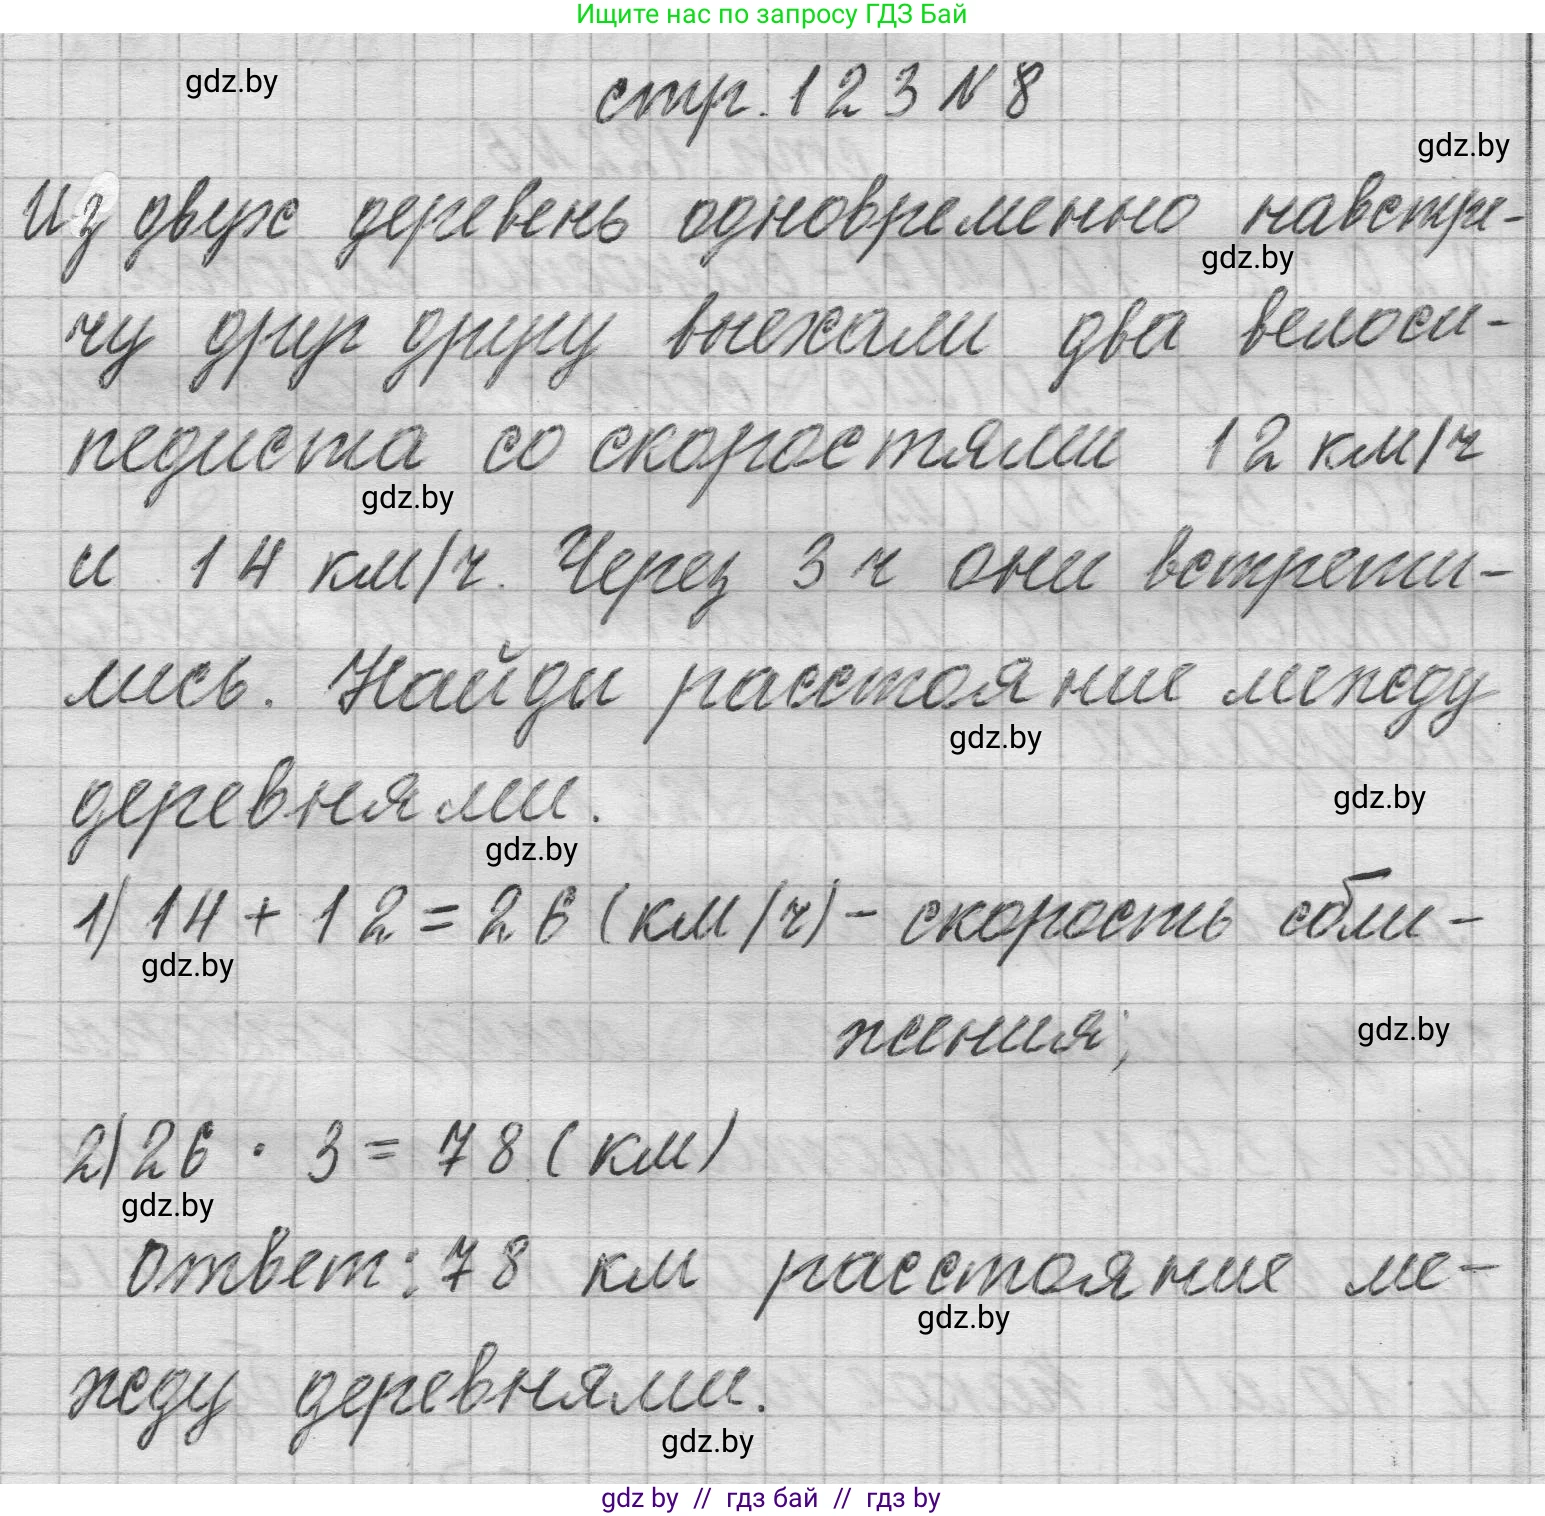 Ищите нас по запросу ГДЗ Бай
gdz.by
стр. 123 N 8
gdz.by
Из двух деревень одновременно навстре-
gdz.by
чу друг другу выехали два велоси-
педиста со скоростями 12 км/ч
gdz.by
и 14 км/ч. Через 3 ч они встрети-
лись. Найди расстояние между
gdz.by
деревнями.
gdz.by
gdz.by
1) 14 + 12 = 26 (км/ч) - скорость сбли-
gdz.by
жения;
gdz.by
2) 26 · 3 = 78 (км)
gdz.by
Ответ: 78 км расстояние ме-
gdz.by
жду деревнями.
gdz.by
gdz by // гдз бай // гдз by